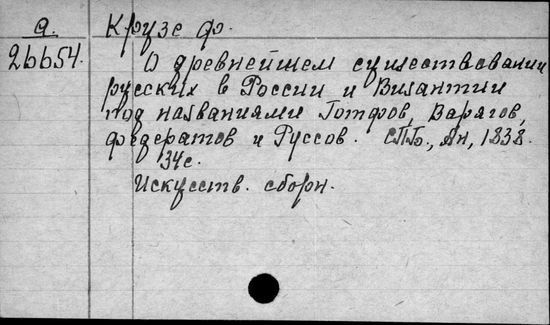 а.
26654.
Крузе Ф.
О древнейшем существовании
русских в России и Византии
под названиями Готфов, Варягов,
федератов и Руссов. СПБ., Ан, 1838.
34с.
Искусств. сборн.